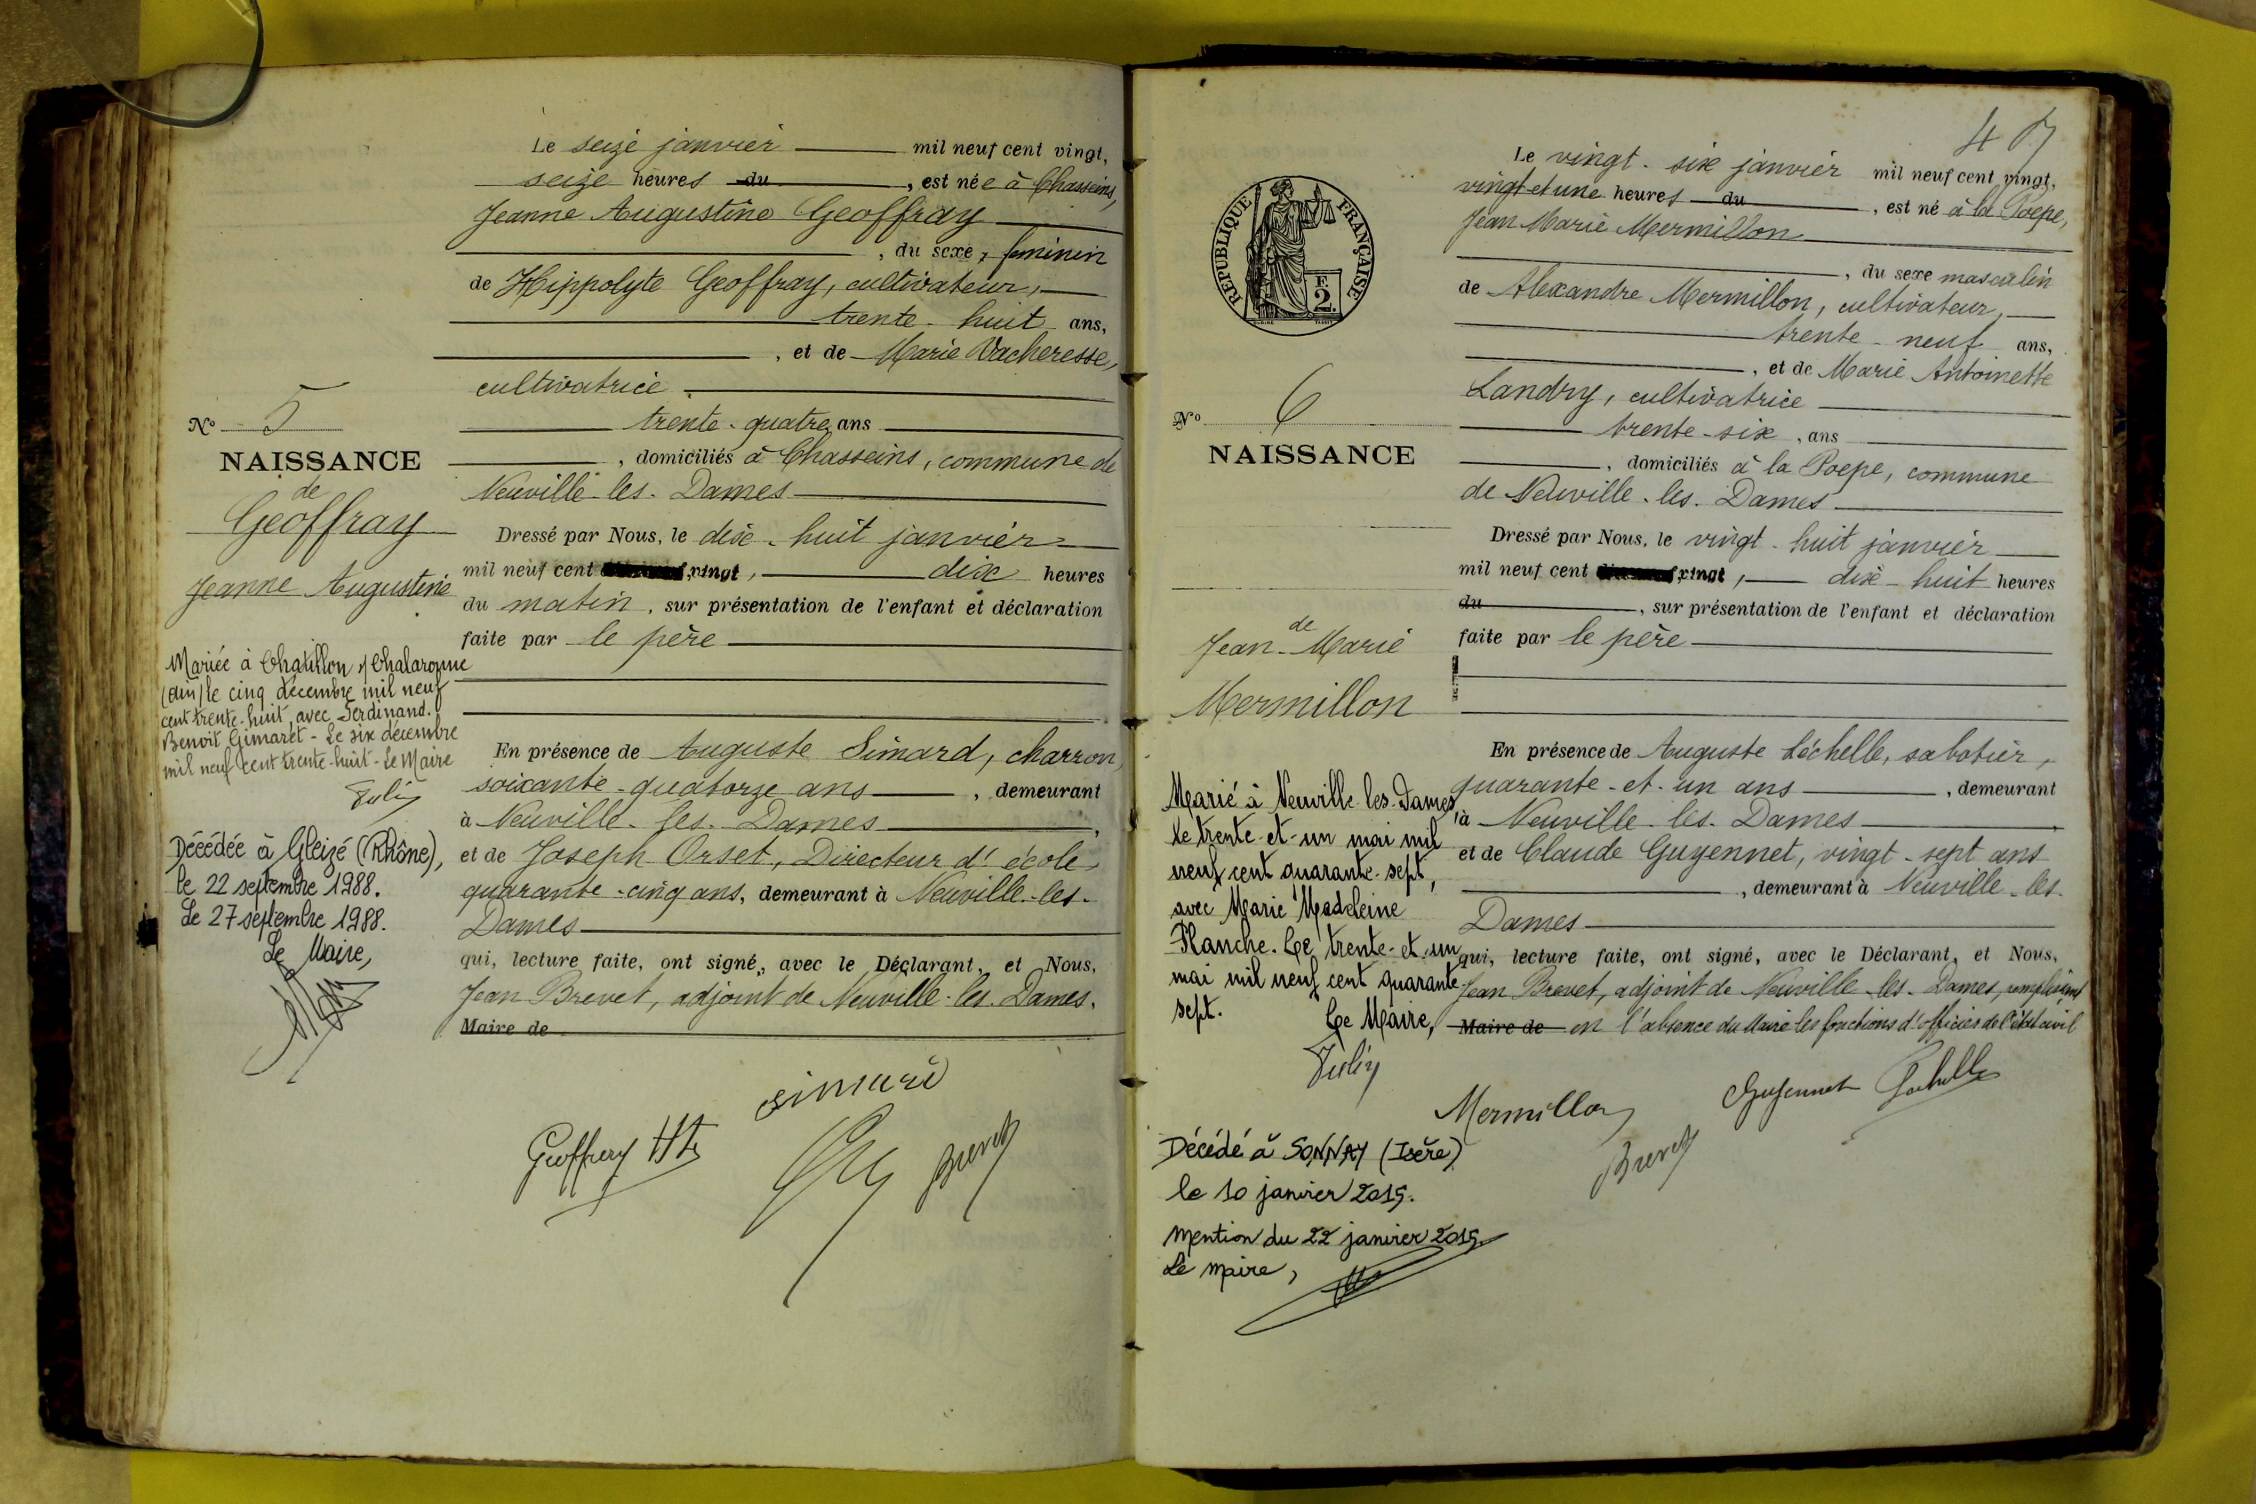 Le seize janvier mil neuf cent vingt,
seize heures du , est née à Chasseins,
Jeanne Augustine Geoffray
, du sexe, féminin
de Hippolyte Geoffray, cultivateur,
trente-huit ans,
, et de Marie Vacheresse,
cultivatrice
trente-quatre ans
, domiciliés à Chasseins, commune de
Neuville-les-Dames
Dressé par Nous, le dix-huit janvier
mil neuf cent vingt, dix heures
du matin, sur présentation de l'enfant et déclaration
faite par le père
En présence de Auguste Simard, charron,
soixante-quatorze ans , demeurant
à Neuville-les-Dames ,
et de Joseph Orset, Directeur d'école
quarante-cinq ans, demeurant à Neuville-les-
Dames
qui, lecture faite, ont signé, avec le Déclarant, et Nous,
Jean Brevet, adjoint de Neuville-les-Dames.
Maire de
Simard
Geoffray Hte
Brevet
No 5
NAISSANCE
de
Geoffray
Jeanne Augustine
Mariée à Chatillon s/ Chalaronne
(Ain) le cinq décembre mil neuf
cent trente-huit avec Ferdinand.
Benoit Gimaret - Le six décembre
mil neuf cent trente-huit - Le Maire
Décédée à Gleizé (Rhône),
le 22 septembre 1988.
Le 27 septembre 1988.
Le Maire,
4
RÉPUBLIQUE FRANÇAISE
F.
2.
No 6
NAISSANCE
de
Jean-Marie
Mermillon
Marié à Neuville-les-Dames
le trente-et-un mai mil
neuf cent quarante-sept,
avec Marie Madeleine
Planche. Le trente-et-un
mai mil neuf cent quarante
sept. Le Maire,
Décédé à SONNAY (Isère)
le 10 janvier 2015.
Mention du 22 janvier 2015.
Le maire,
Le vingt-six janvier mil neuf cent vingt,
vingt et une heures du , est né à la Poepe,
Jean Marie Mermillon
, du sexe masculin
de Alexandre Mermillon, cultivateur,
trente-neuf ans,
, et de Marie Antoinette
Landry, cultivatrice
trente-six, ans
, domiciliés à la Poepe, commune
de Neuville-les-Dames
Dressé par Nous, le vingt-huit janvier
mil neuf cent vingt, dix-huit heures
du , sur présentation de l'enfant et déclaration
faite par le père
En présence de Auguste Léchelle, sabotier,
quarante-et-un ans , demeurant
à Neuville-les-Dames
et de Claude Guyennet, vingt-sept ans
, demeurant à Neuville-les-
Dames
qui, lecture faite, ont signé, avec le Déclarant, et Nous,
Jean Brevet, adjoint de Neuville-les-Dames, remplissant
Maire de en l'absence du Maire les fonctions d'officier de l'état civil
Mermillon
Guyennet
Brevet